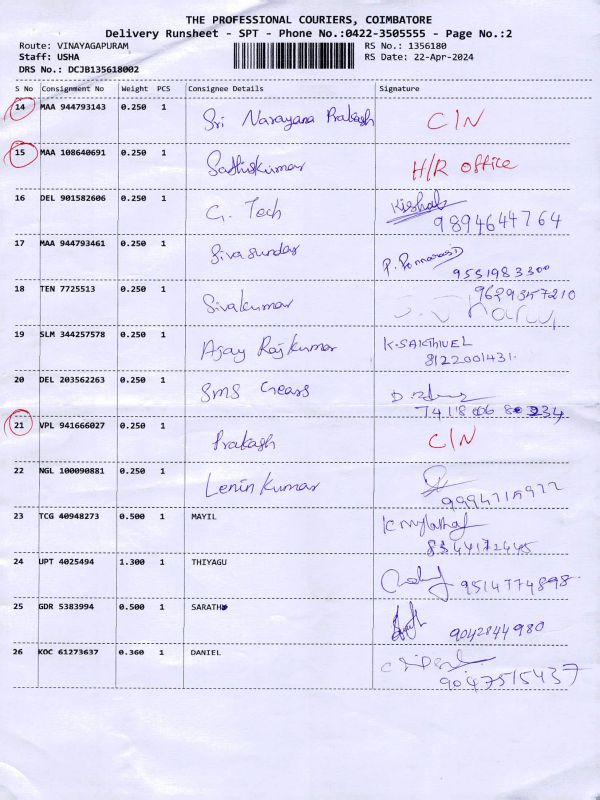 THE PROFESSIONAL COURIERS, COIMBATORE
Delivery Runsheet - SPT - Phone No.:0422-3505555 - Page No.:2
Route: VINAYAGAPURAM RS No.: 1356180
Staff: USHA RS Date: 22-Apr-2024
DRS No.: DCJB135618002
S No Consignment No Weight PCS Consignee Details Signature
14 MAA 944793143 0.250 1 Sri Narayana Prakash C/N
15 MAA 108640691 0.250 1 Sathiskumar H/R office
16 DEL 901582606 0.250 1 G. Tech
9894644764
17 MAA 944793461 0.250 1 Sivasundar
9551983300
18 TEN 7725513 0.250 1 Sivakumar 9629357210
19 SLM 344257578 0.250 1 Ajay Rajkumar K.SAKTHIVEL
8122001431.
20 DEL 203562263 0.250 1 SMS Gears
21 VPL 941666027 0.250 1 Prakash C/N
22 NGL 100090881 0.250 1 Lenin Kumar
23 TCG 40948273 0.500 1 MAYIL
8344172445
24 UPT 4025494 1.300 1 THIYAGU 9514774898
25 GDR 5383994 0.500 1 SARATH 9042844980
26 KOC 61273637 0.360 1 DANIEL
9047515437